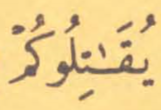 يُقَٰتِلُوكُمْ